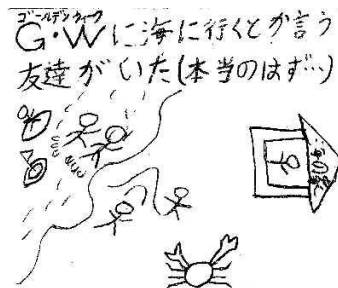 ゴールデンウィーク
G・Wに海に行くとか言う
友達がいた(本当のはず…)